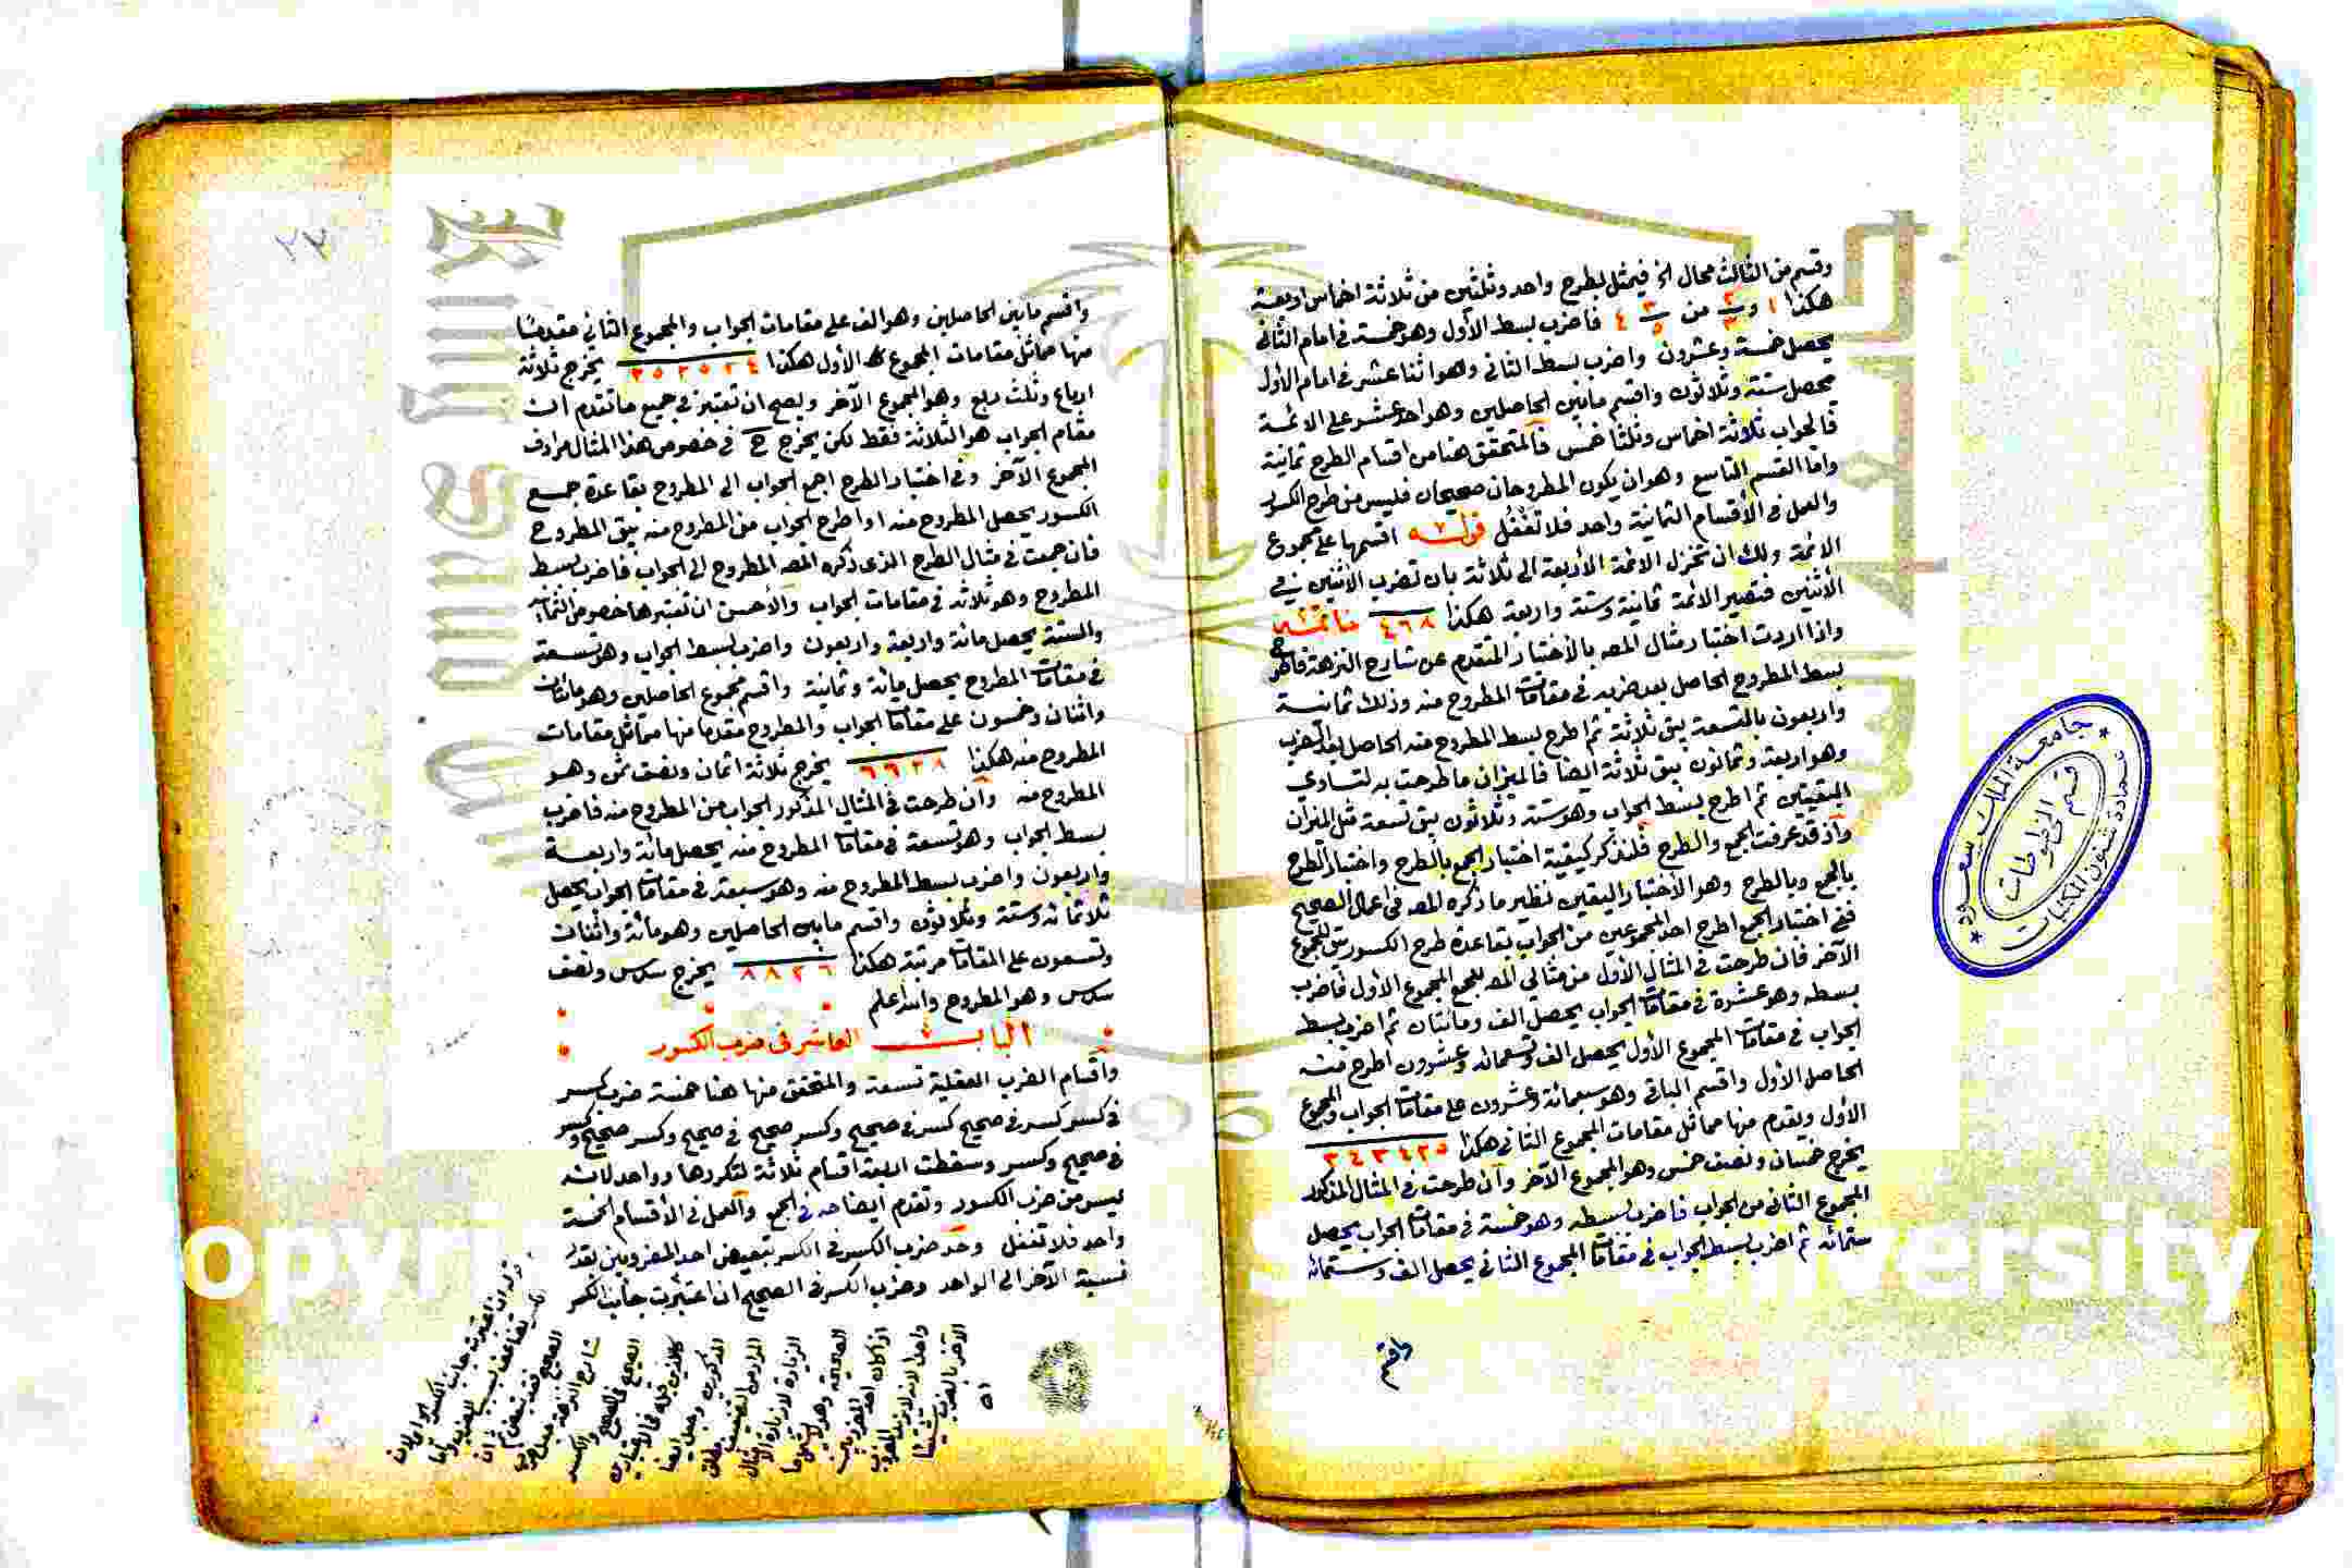 وقسم من الثالث محال اخ فيمثل لطرح واحد وثلثين من ثلاثة اخماس اربعة
هكذا ١ و ٢/٣ من ٣/٥ ٤ فاضرب بسط الأول وهو خمسة في امام الثاني
يحصل خمسة وعشرون واضرب بسط الثاني وهو اثنا عشر في امام الأول
يحصل ستة وثلاثون واقسم مابين الحاصلين وهو احد عشر على الائمة
فالجواب ثلاثة اخماس وثلثا خمس فالمتحقق هنا من اقسام الطرح ثمانية
واما القسم التاسع وهو ان يكون المطروحان صحيحان فليس من طرح الكسور
والعمل في الأقسام الثمانية واحد فلا تغفل قوله اقسمها على مجموع
الائمة ولك ان تختزل الائمة الأربعة الى ثلاثة بان تضرب الاثنين في
الأثنين فتصير الائمة ثمانية وستة واربعة هكذا ٤٦٨ خاتمة
واذا اردت اختبار مثال المصه بالأختبار المتقدم عن شارح النزهة فاطرح
بسط المطروح الحاصل بعد ضربه في مقامات المطروح منه وذلك ثمانية
واربعون بالتسعة يبق ثلاثة ثم اطرح بسط المطروح منه الحاصل بعد الضرب
وهو اربعة وثمانون يبق ثلاثة ايضا فالميزان ما طرحت به لتساوي
البقيتين ثم اطرح بسط الجواب وهو ستة وثلاثون يبق تسعة مثل الميزان
واذ قد عرفت الجمع والطرح فلنذكر كيفية اختبار الجمع بالطرح واختبار الطرح
بالجمع وبالطرح وهو الأختبار اليقين نظير ما ذكره المصه في اعمال الصحيح
ففي اختبار الجمع اطرح احد المجموعين من الجواب بقاعدة طرح الكسور يبق المجموع
الآخر فان طرحت في المثال الأول من مثالي المصه للجمع المجموع الأول فاضرب
بسطه وهو عشرة في مقامات الجواب يحصل الف ومائتان ثم اضرب بسط
الجواب في مقامات المجموع الأول يحصل الف وتسعمائة وعشرون اطرح منه
الحاصل الأول واقسم الباقي وهو سبعمائة وعشرون على مقامات الجواب والمجموع
الأول ويقدم منها مماثل مقامات المجموع الثاني هكذا ٣٤٣٤٢٥
يخرج خمسان ونصف خمس وهو المجموع الآخر وان طرحت في المثال المذكور
المجموع الثاني من الجواب فاضرب بسطه وهو خمسة في مقامات الجواب يحصل
ستمائة ثم اضرب بسط الجواب في مقامات المجموع الثاني يحصل الف وستمائة
واقسم
جامعة الملك سعود
عمادة شئون المكتبات
قسم المخطوطات
٢٢
واقسم مابين الحاصلين وهو الف على مقامات الجواب والمجموع الثاني مقدما
منها مماثل مقامات المجموع الأول هكذا ٣٥٢٥٢٤ يخرج ثلاثة
ارباع وثلث ربع وهو المجموع الآخر ويصح ان تعتبر في جميع ماتقدم ان
مقام الجواب هو الثلاثة فقط لكن يخرج ح في خصوص هذا المثال مرادف
المجموع الآخر وفي اختبار الطرح اجمع الجواب الى المطروح بقاعدة جمع
الكسور يحصل المطروح منه او اطرح الجواب من المطروح منه يبق المطروح
فان جمعت في مثال الطرح الذي ذكره المصه المطروح الى الجواب فاضرب بسط
المطروح وهو ثلاثة في مقامات الجواب والأحسن ان تعتبرها خصوص الثمانية
والستة يحصل مائة واربعة واربعون واضرب بسط الجواب وهو تسعة
في مقامات المطروح يحصل مائة وثمانية واقسم مجموع الحاصلين وهو مائتان
واثنان وخمسون على مقامات الجواب والمطروح مقدما منها مماثل مقامات
المطروح منه هكذا ٦٦٢٨ يخرج ثلاثة اثمان ونصف ثمن وهو
المطروح منه وان طرحت في المثال المذكور الجواب من المطروح منه فاضرب
بسط الجواب وهو تسعة في مقامات المطروح منه يحصل مائة واربعة
واربعون واضرب بسط المطروح منه وهو سبعة في مقامات الجواب يحصل
ثلاثمائة وستة وثلاثون واقسم مابين الحاصلين وهو مائة واثنان
وتسعون على المقامات مرتبة هكذا ٨٨٢٦ يخرج سدس ونصف
سدس وهو المطروح والله اعلم
الباب العاشر في ضرب الكسور
واقسام الضرب العقلية تسعة والمتحقق منها هنا خمسة ضرب كسر
في كسر كسر في صحيح كسر في صحيح وكسر صحيح في صحيح وكسر صحيح وكسر
في صحيح وكسر وسقطت اربعة اقسام ثلاثة لتكررها وواحد لانه
ليس من ضرب الكسور وتقدم ايضاحه في الجمع والعمل في الأقسام الخمسة
واحد فلا تغفل وحد ضرب الكسر في الكسر تبعيض احد المضروبين بقدر
نسبة الآخر الى الواحد وضرب الكسر في الصحيح ان اعتبرت جانب الكسر
قوله ان اعتبرت جانب الكسر
شارح النزهة
اذا كان احد المضروبين
اه